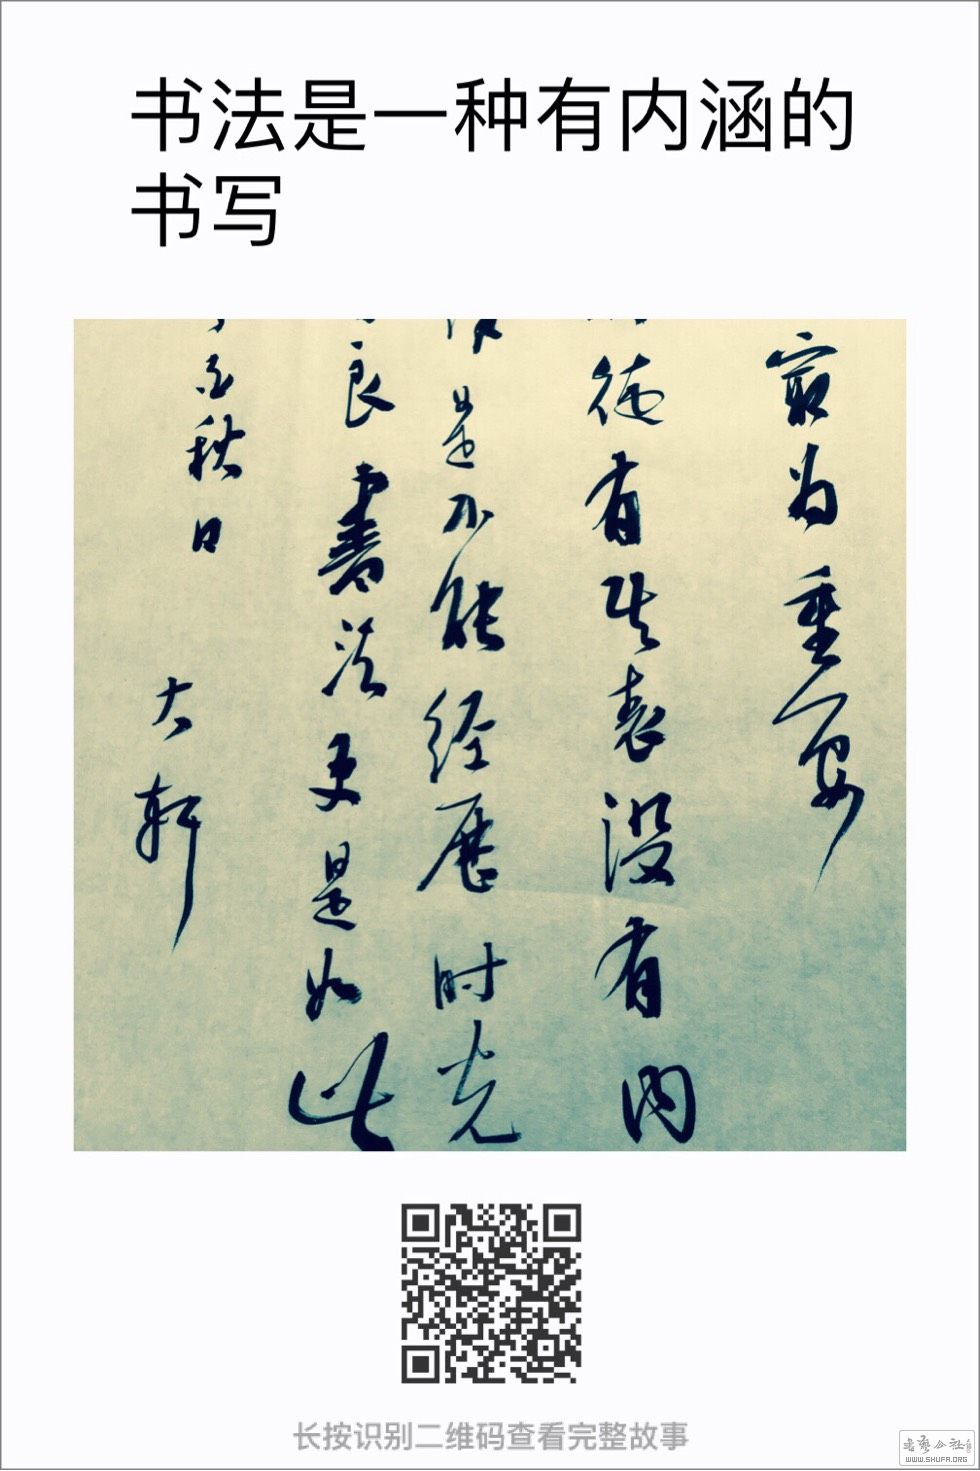 书法是一种有内涵的
书写
最为重要
徒有其表没有内
是不能经历时光
良书法更是如此
秋日
大轩
长按识别二维码查看完整故事
书艺公社
WWW.SHUFA.ORG